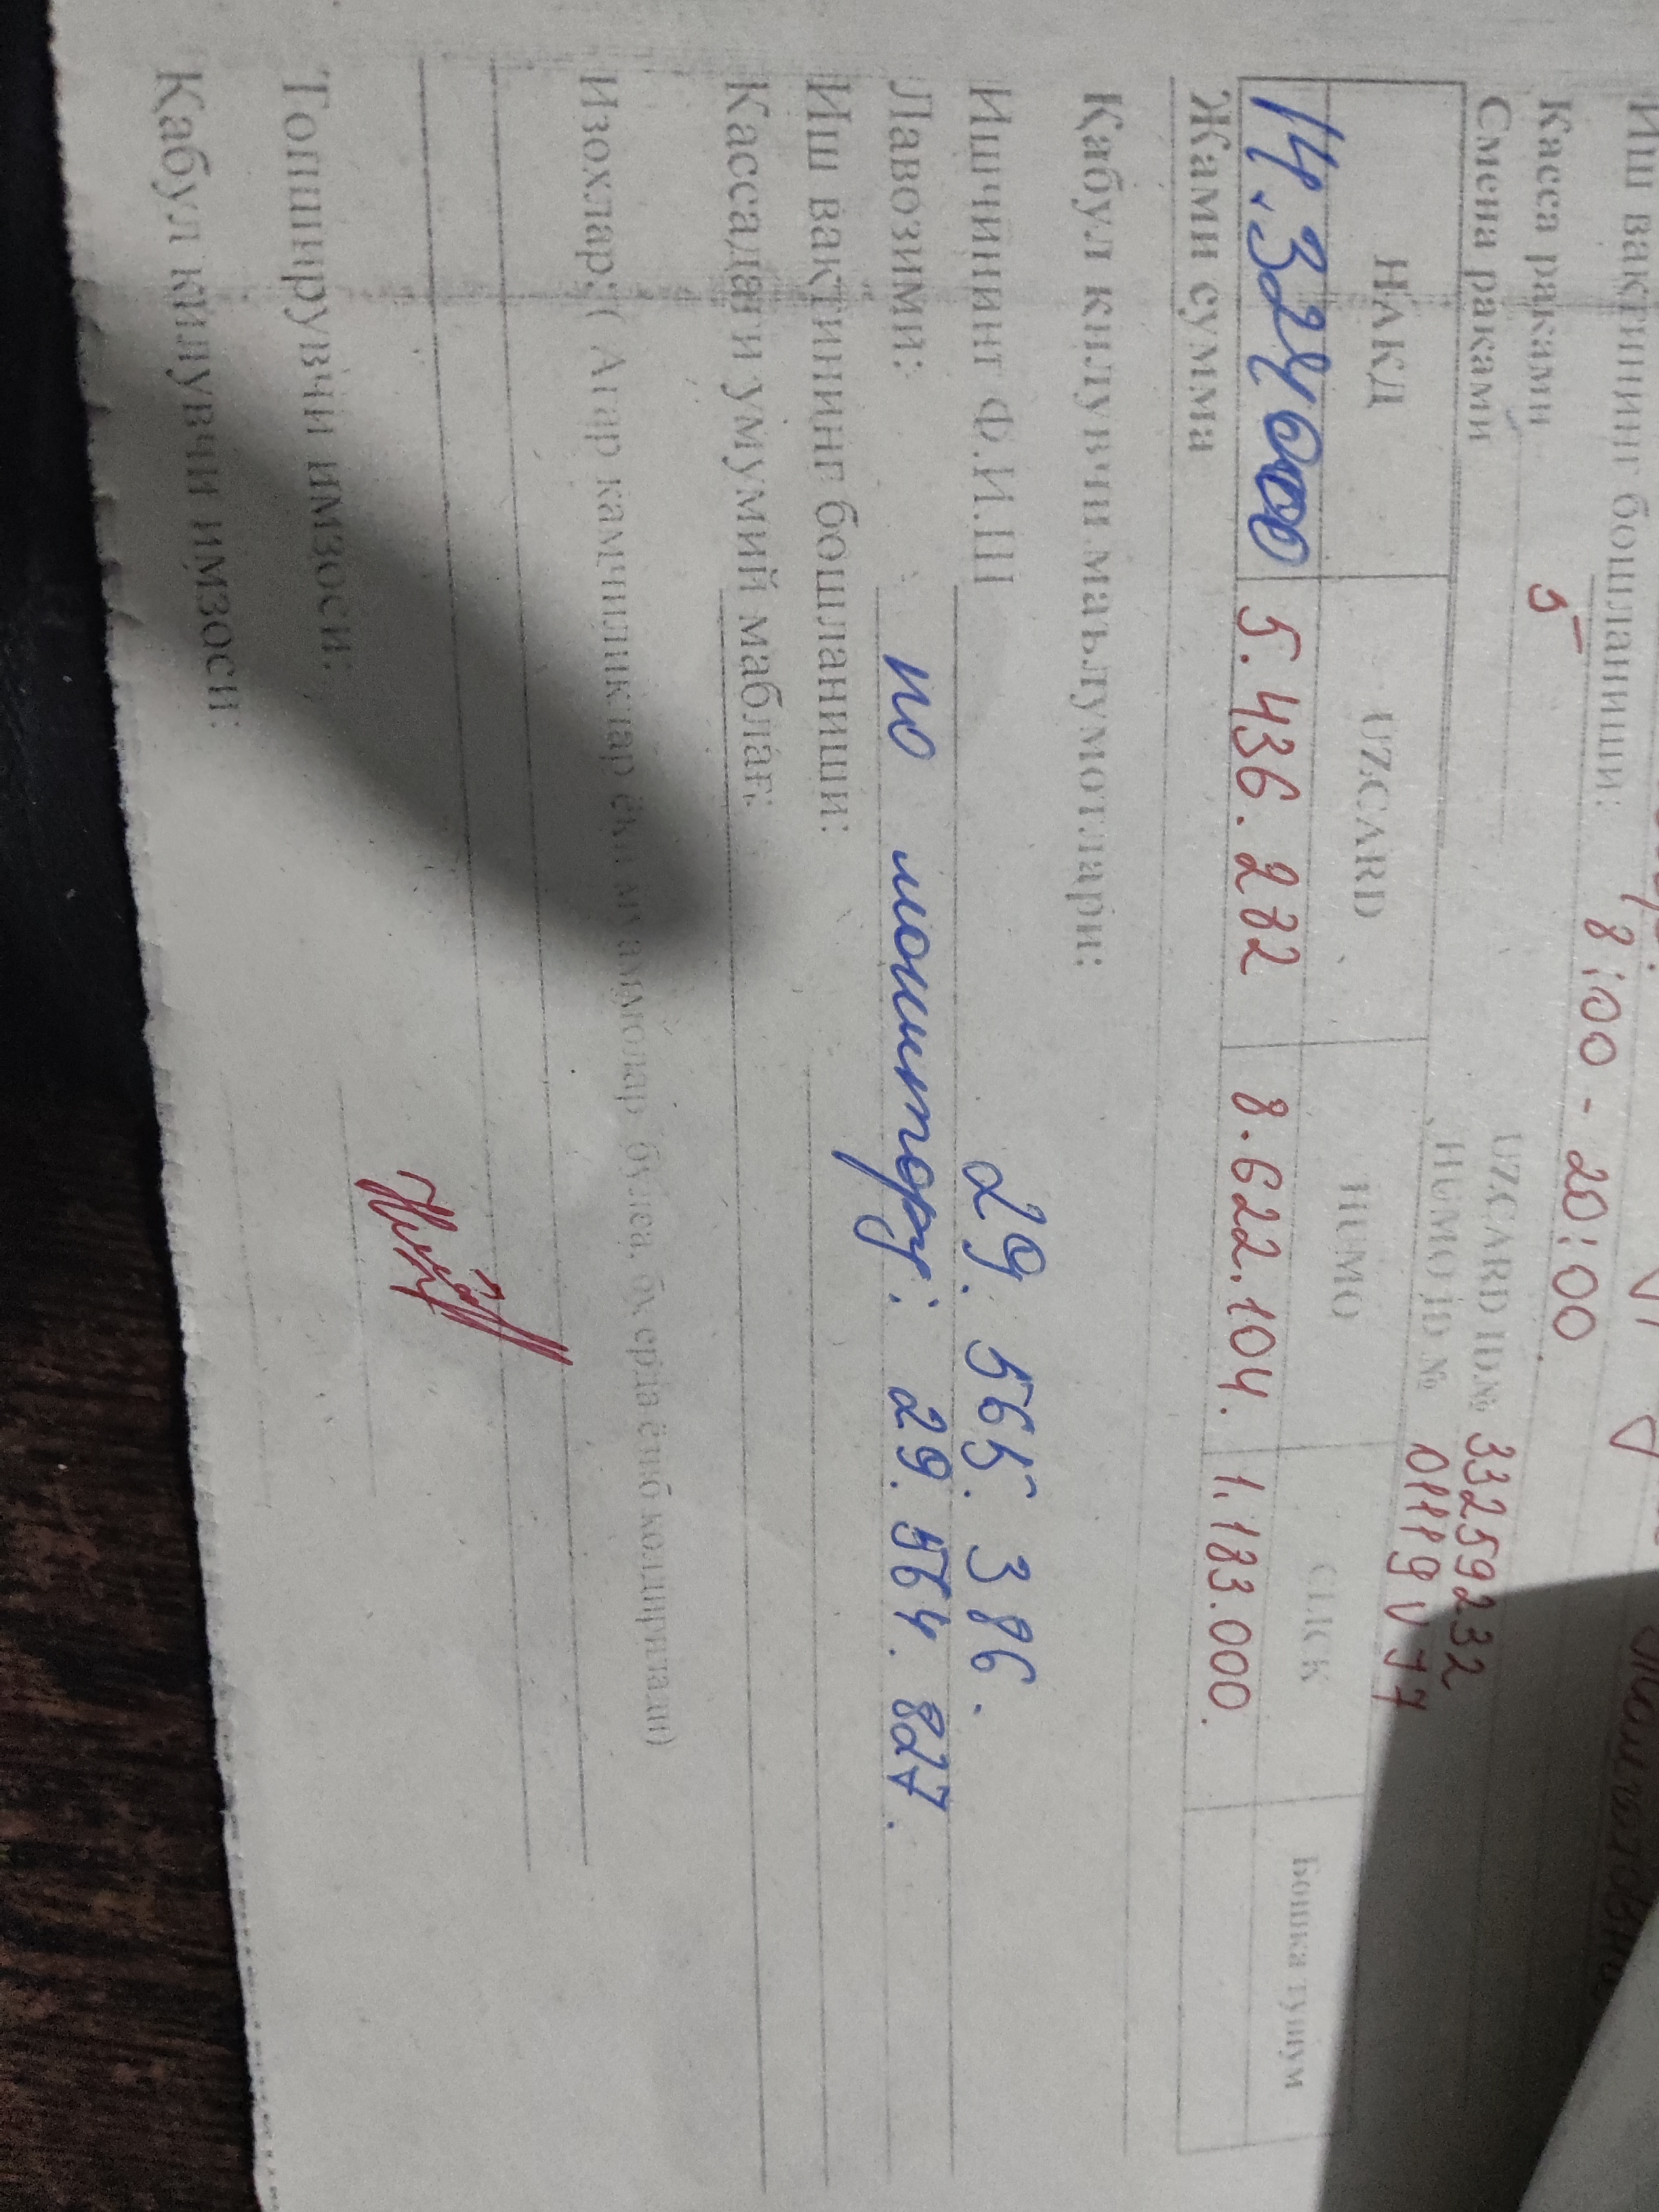 Иш вактининг бошланиши: 8:00 - 20:00
Касса раками 5
Смена раками
UZCARD ID№ 33259232
HUMO ID №
НАКД UZCARD HUMO CLICK Бошка тушум
14.324000 5.436.282 8.622.104. 1.183.000.
Жами сумма
Қабул килувчи маълумотлари:
29. 565. 386.
Ишчининг Ф.И.Ш
Лавозими: по монитору: 29. 564. 827.
Иш вактининг бошланиши:
Кассадаги умумий маблағ:
Изохлар: ( Агар камчиликлар ёки муаммолар булса, бу ерга ёзиб колдирилади)
Топширувчи имзоси:
Қабул килувчи имзоси: